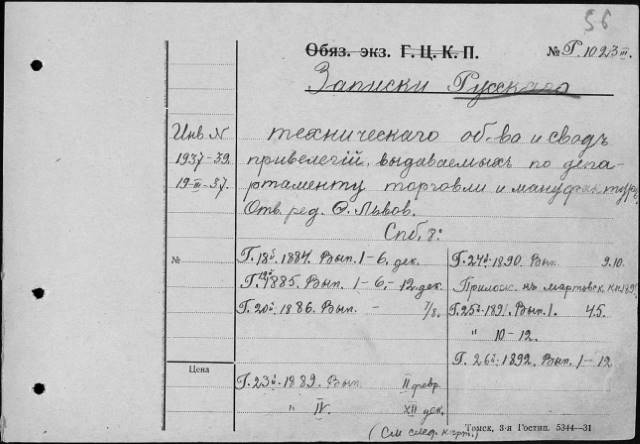 56
Обяз. экз. Г. Ц. К. П. № Г. 1023 III.
Записки Русскаго
Инв N техническаго об-ва и сводъ
1937-39. привелегiй, выдаваемыхъ по депа-
19-III-37. ртаменту торговли и мануфактуръ
Отв. ред. Ѳ. Львов.
Спб. 8:
№ Г. 18й 1884. Вып. 1-6. дек.
Г. 19й 1885. Вып. 1-6,-12. дек.
Г. 20й 1886. Вып. - 7/8.
Г. 24й 1890. Вып. 9.10.
Прилож. къ мартовск. кн.
Г. 25й 1891. Вып. 1. 4.5.
" 10-12.
Г. 26й 1892. Вып. 1-12
Цена
Г. 23й 1889. Вып. II февр.
" IV. XII дек.
(См след. карт.)
Томск, 3-я Гостип. 5344—31